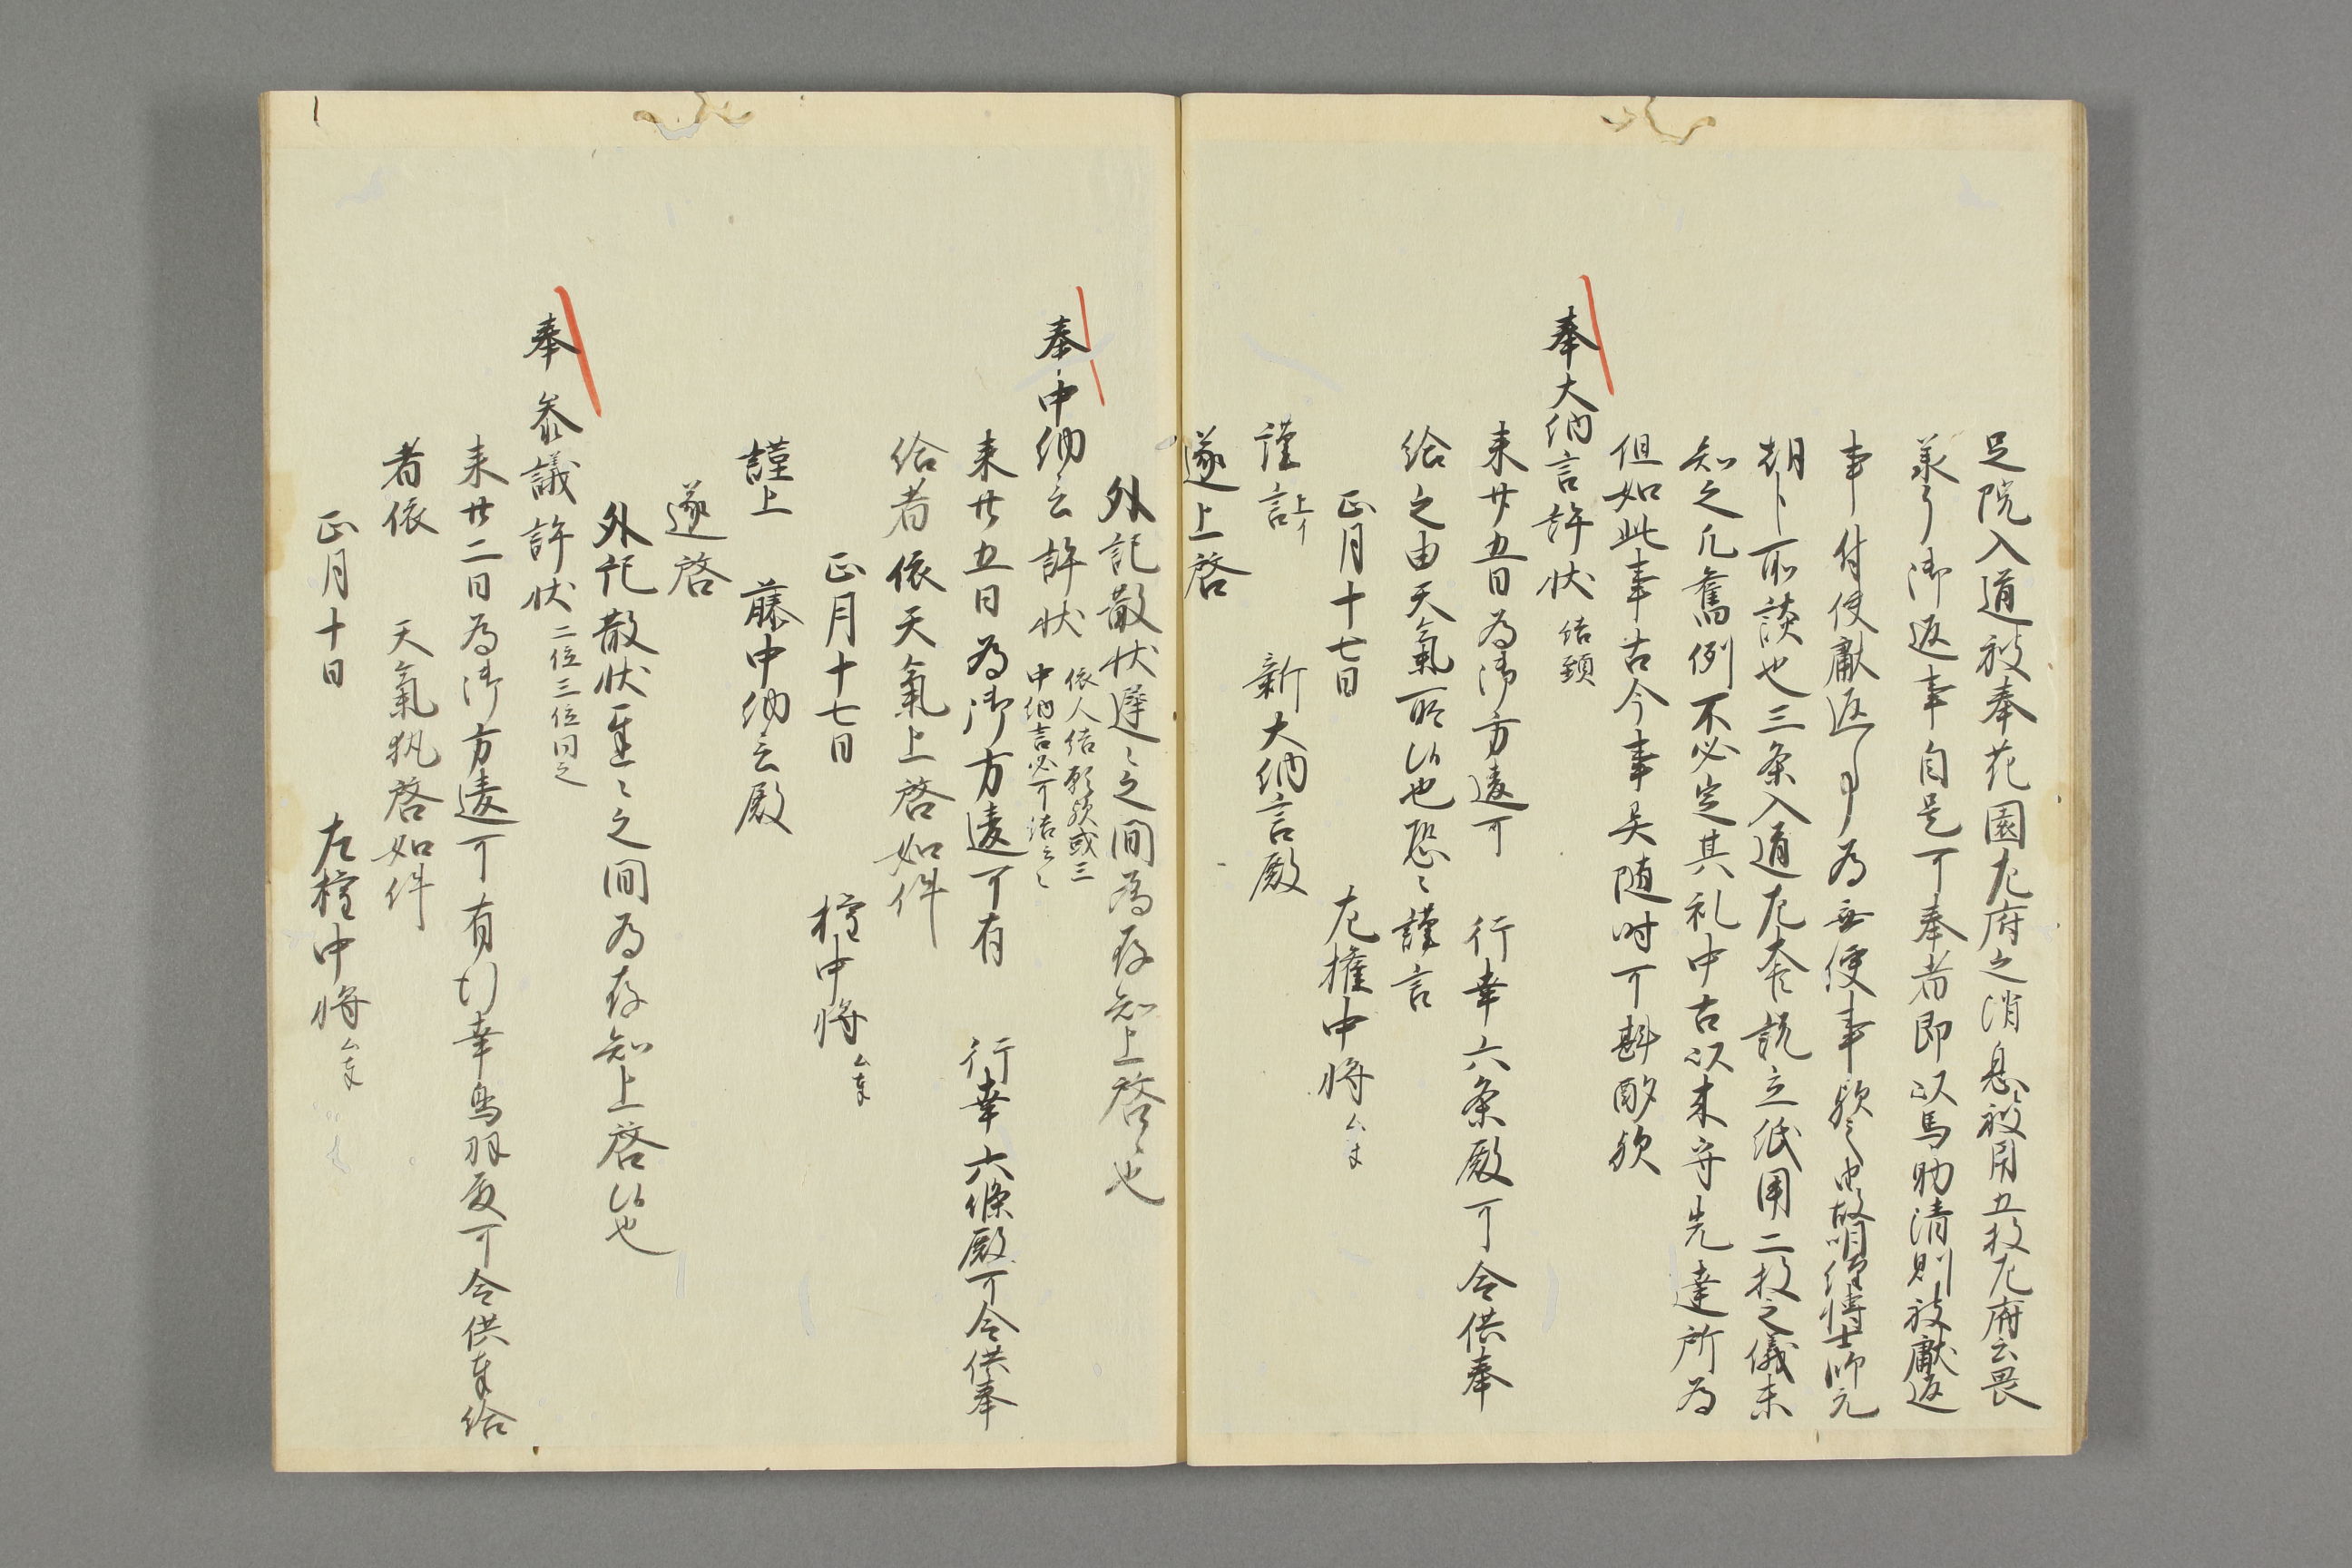 足院入道被奉花園左府之消息被用五枚左府云畏
承了御返事自是可奉者即以馬助清則被献返
事付使献返事為無便事歟之由故明経博士師元
朝臣所談也三条入道左大臣説立紙用二枚之儀未
知之凡旧例不必定其礼中古以来守先達所為
但如此事古今事異随时可斟酌歟
奉大納言許状 結頚
来廿五日為御方違可 行幸六条殿可令供奉
給之由天氣所候也恐々謹言
正月十七日 左権中将
謹言上 新大納言殿
遂上啓
外記散状遅々之間為存知上啓也
奉中納言許状 依人結頚歟或云
中納言必可結云々
来廿五日為御方違可有 行幸六條殿可令供奉
給者依天氣上啓如件
正月十七日 権中将
謹上 藤中納言殿
遂啓
外記散状遅々之間為存知上啓候也
奉 参議許状 二位三位同之
来廿二日為御方違可有行幸鳥羽殿可令供奉給
者依 天氣執啓如件
正月十日 左権中将